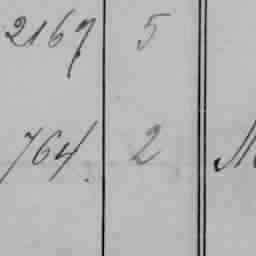 2167 5
764. 2